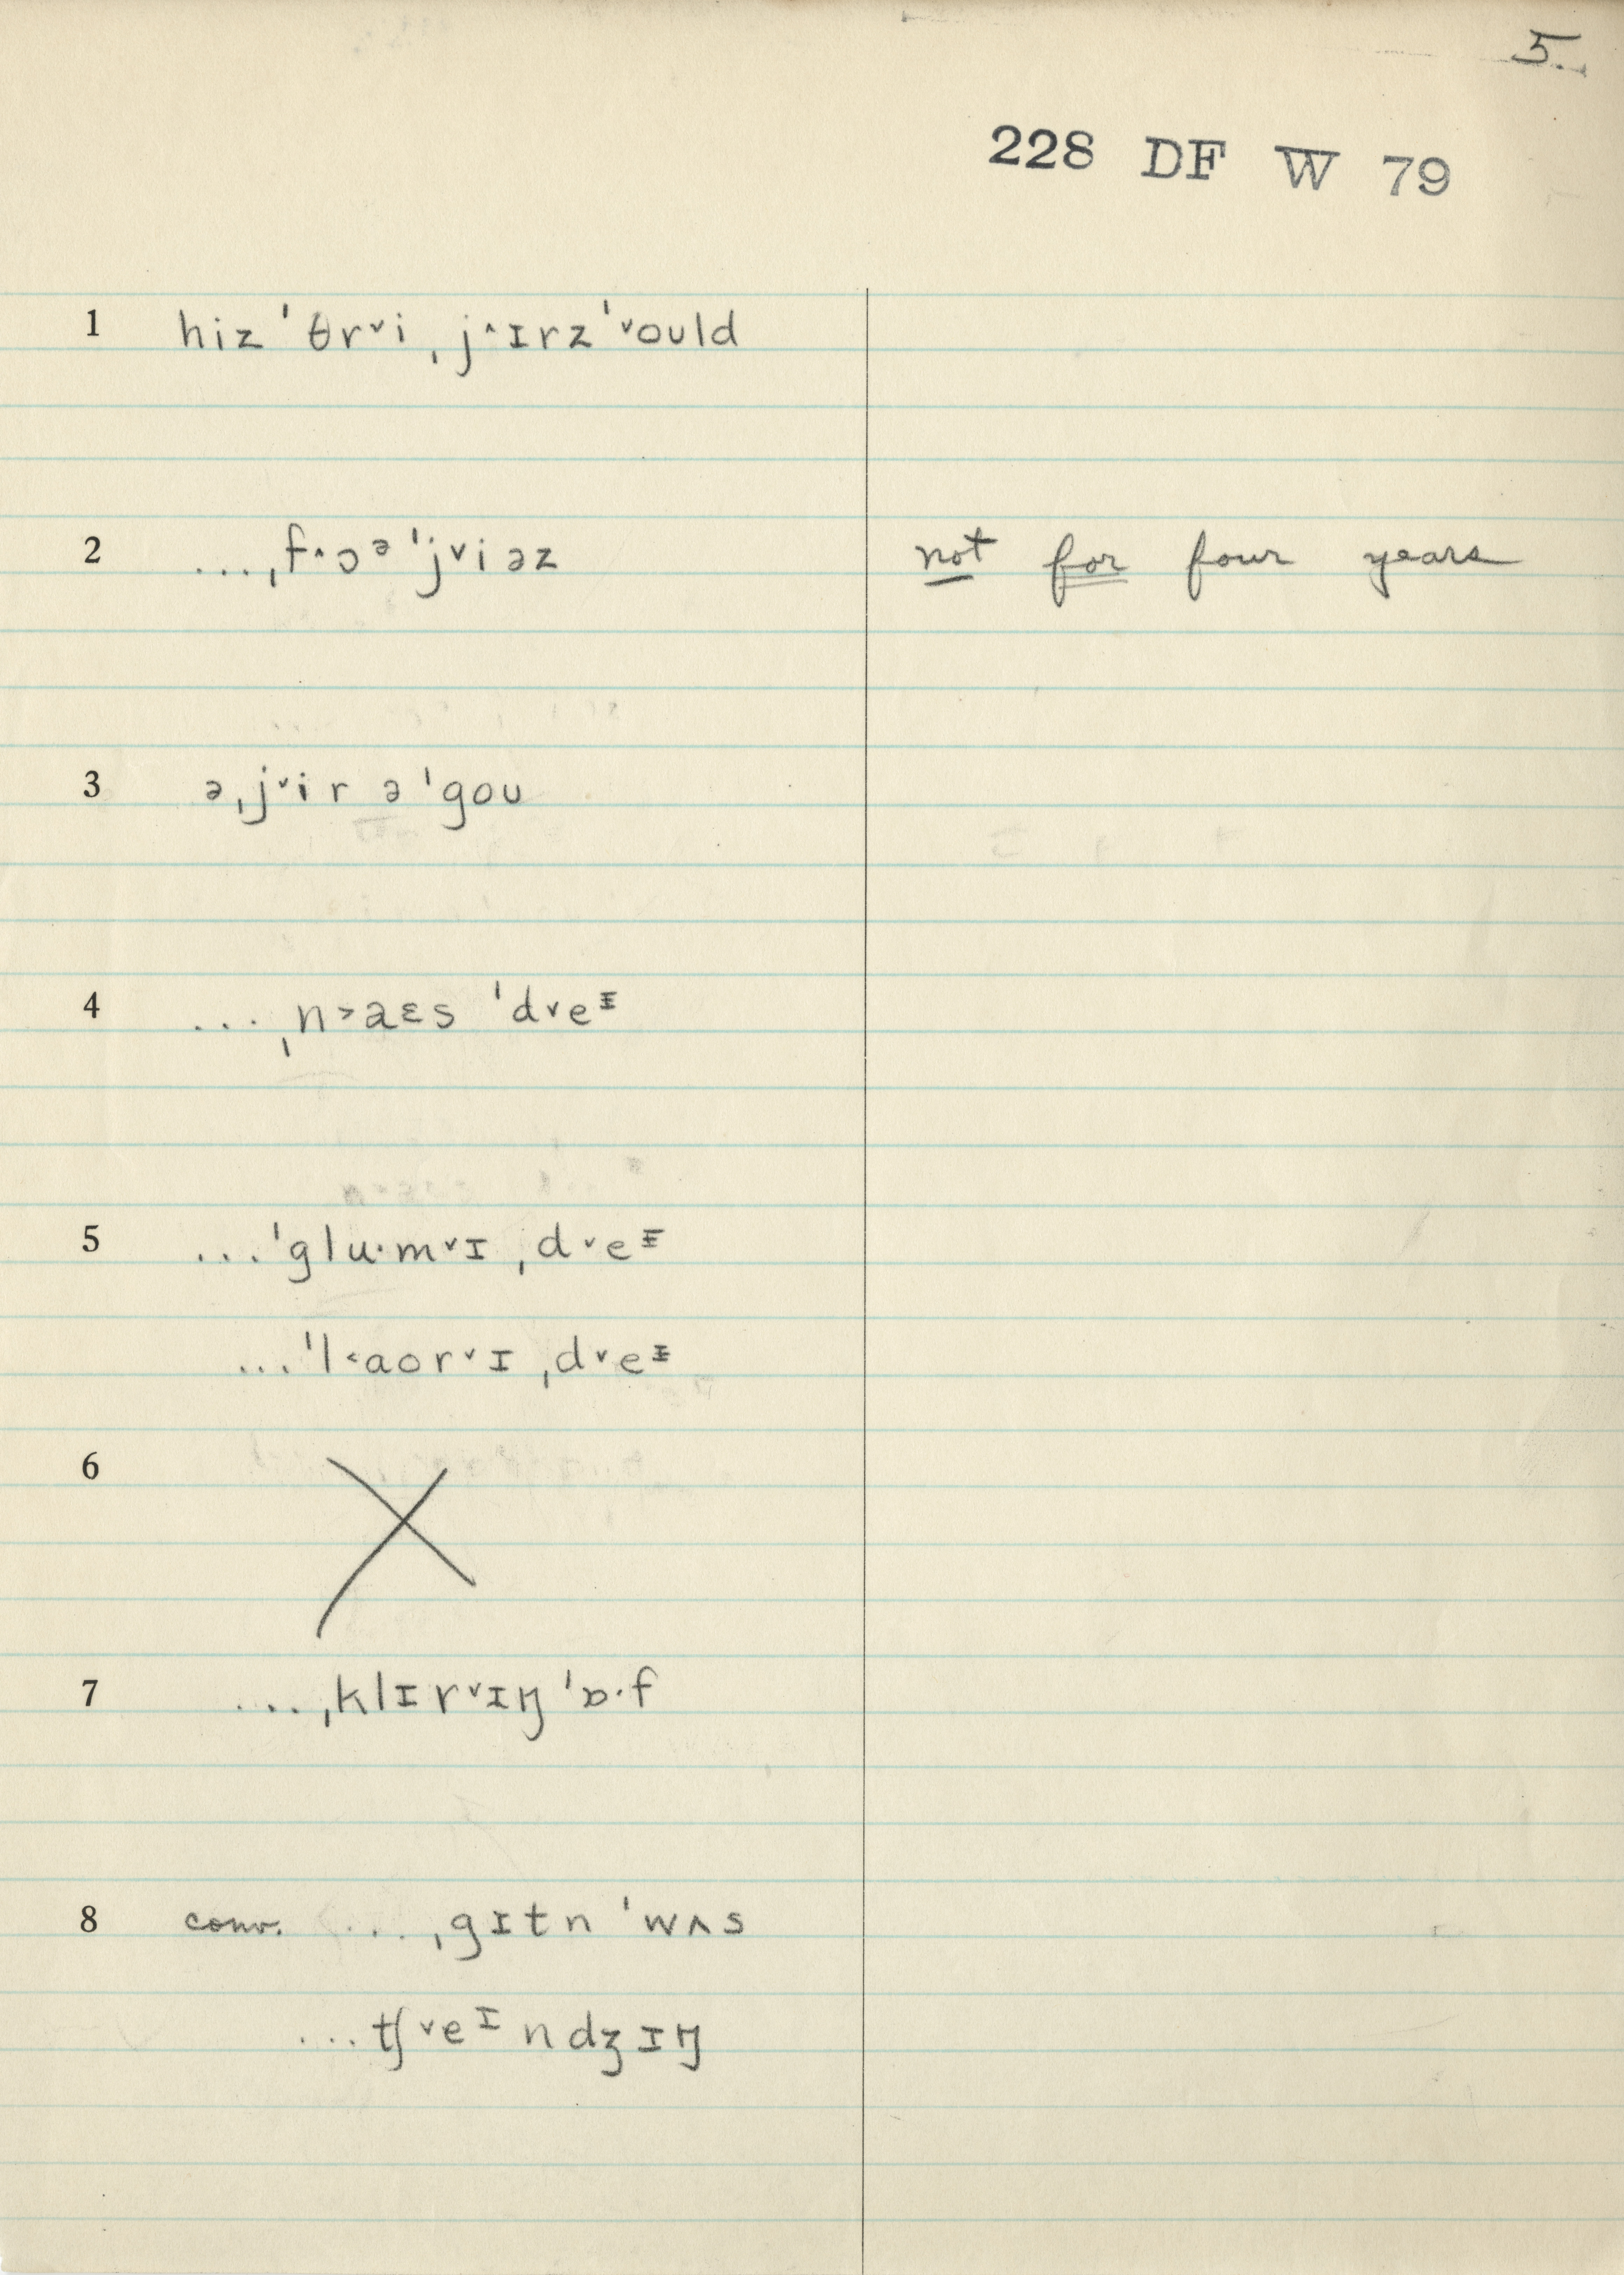 5.
228 DF W 79
1 hiz ˈθr˅i ˌj˄ɪrz ˈ˅oʊld
2 ...ˌf˄ɔᵊ ˈj˅iəz not for four years
3 əˌj˅ir ə ˈgoʊ
4 ...ˌn˃aɛs ˈd˅eᶦ
5 ...ˈglu·m˅ɪ ˌd˅eᶦ
...ˈl˂aor˅ɪ ˌd˅eᶦ
6
7 ...ˌklɪr˅ɪŋ ˈɒ·f
8 conv. ...ˌgɪtn ˈwʌs
...tʃ˅eᶦndʒɪŋ